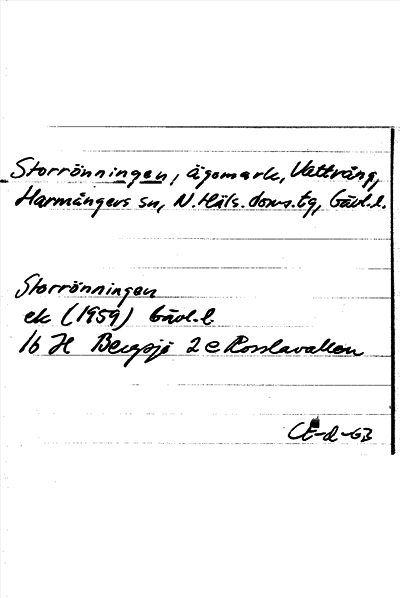 Storrönningen, ägomark, Vattrång,
Harmångers sn, N. Häls. doms. tg, Gävl. l.
Storrönningen
ek (1959) Gävl. l.
16 H Bergsjö 2 e Rosslavallen